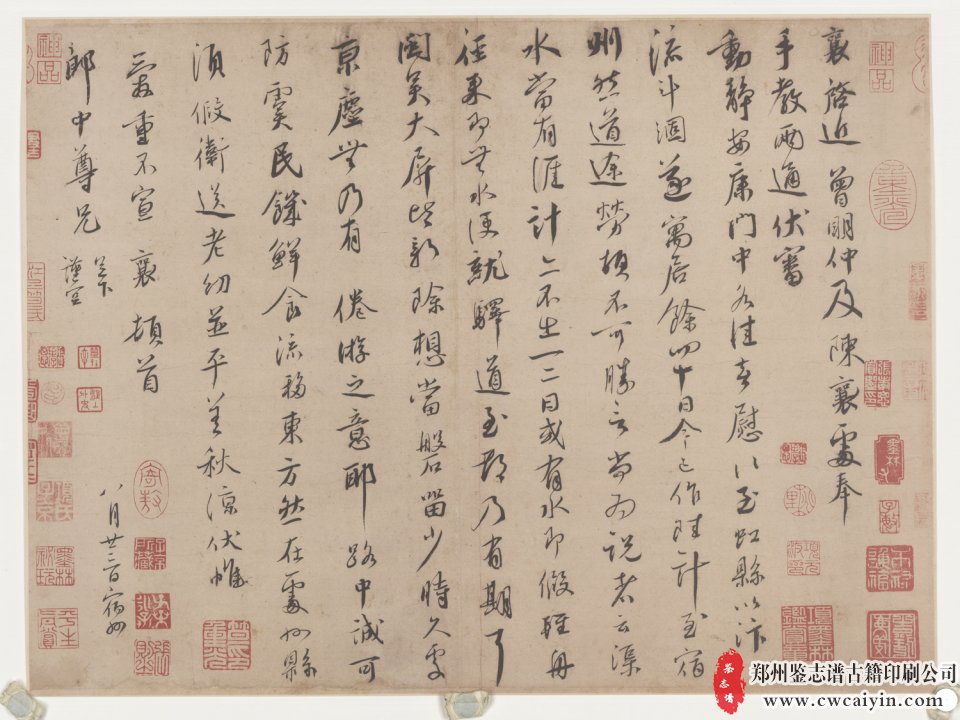 襄啓近 曾明仲及 陳襄處奉
手教兩通伏審
動靜安康門中各佳喜慰〻至虹縣以汴
流斗涸遂寓居餘四十日今已作陸計至宿
州然道途勞頓不可勝言尚為說者云渠
水當有涯計亦不出一二日或有水即假輕舟
徑來即無水便就驛道至都乃有期耳
閩吳大屏皆新除想當磐留少時久處
京塵無乃有 倦游之意耶 路中誠可
防虞民饑鮮食流移東方然在處州縣
須假衛送老幼並平善秋涼伏惟
愛重不宣 襄 頓首
郎中尊兄 足下
謹空
八月廿三日宿州
神品
郑州鉴志谱古籍印刷公司
www.cwcaiyin.com